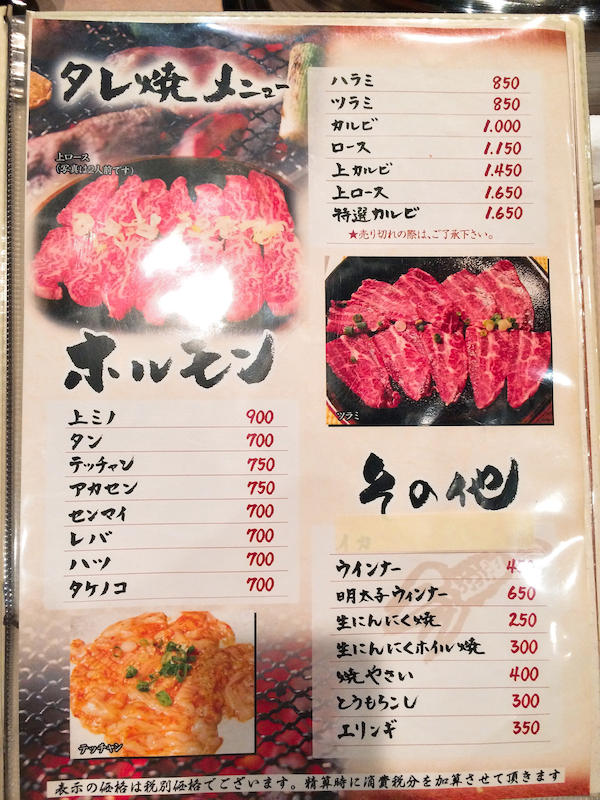 タレ焼メニュー
上ロース
(写真は2人前です)
ハラミ 850
ツラミ 850
カルビ 1.000
ロース 1.150
上カルビ 1.450
上ロース 1.650
特選カルビ 1.650
★売り切れの際は、ご了承下さい。
ツラミ
ホルモン
上ミノ 900
タン 700
テッチャン 750
アカセン 750
センマイ 700
レバ 700
ハツ 700
タケノコ 700
テッチャン
その他
ウインナー
明太子ウィンナー 650
生にんにく焼 250
生にんにくホイル焼 300
焼やさい 400
とうもろこし 300
エリンギ 350
表示の価格は税別価格でございます。精算時に消費税分を加算させて頂きます